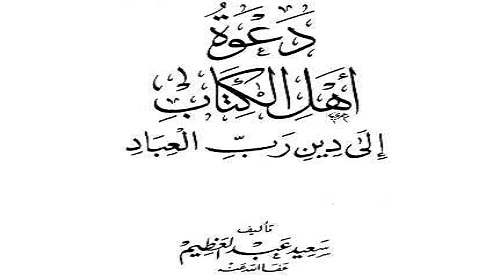 دَعْوَةُ
أَهْلِ الْكِتَابِ
إِلَى دِينِ رَبِّ الْعِبَادِ
تأليف
سَعِيد عَبْد العَظِيم
عفا الله عنه